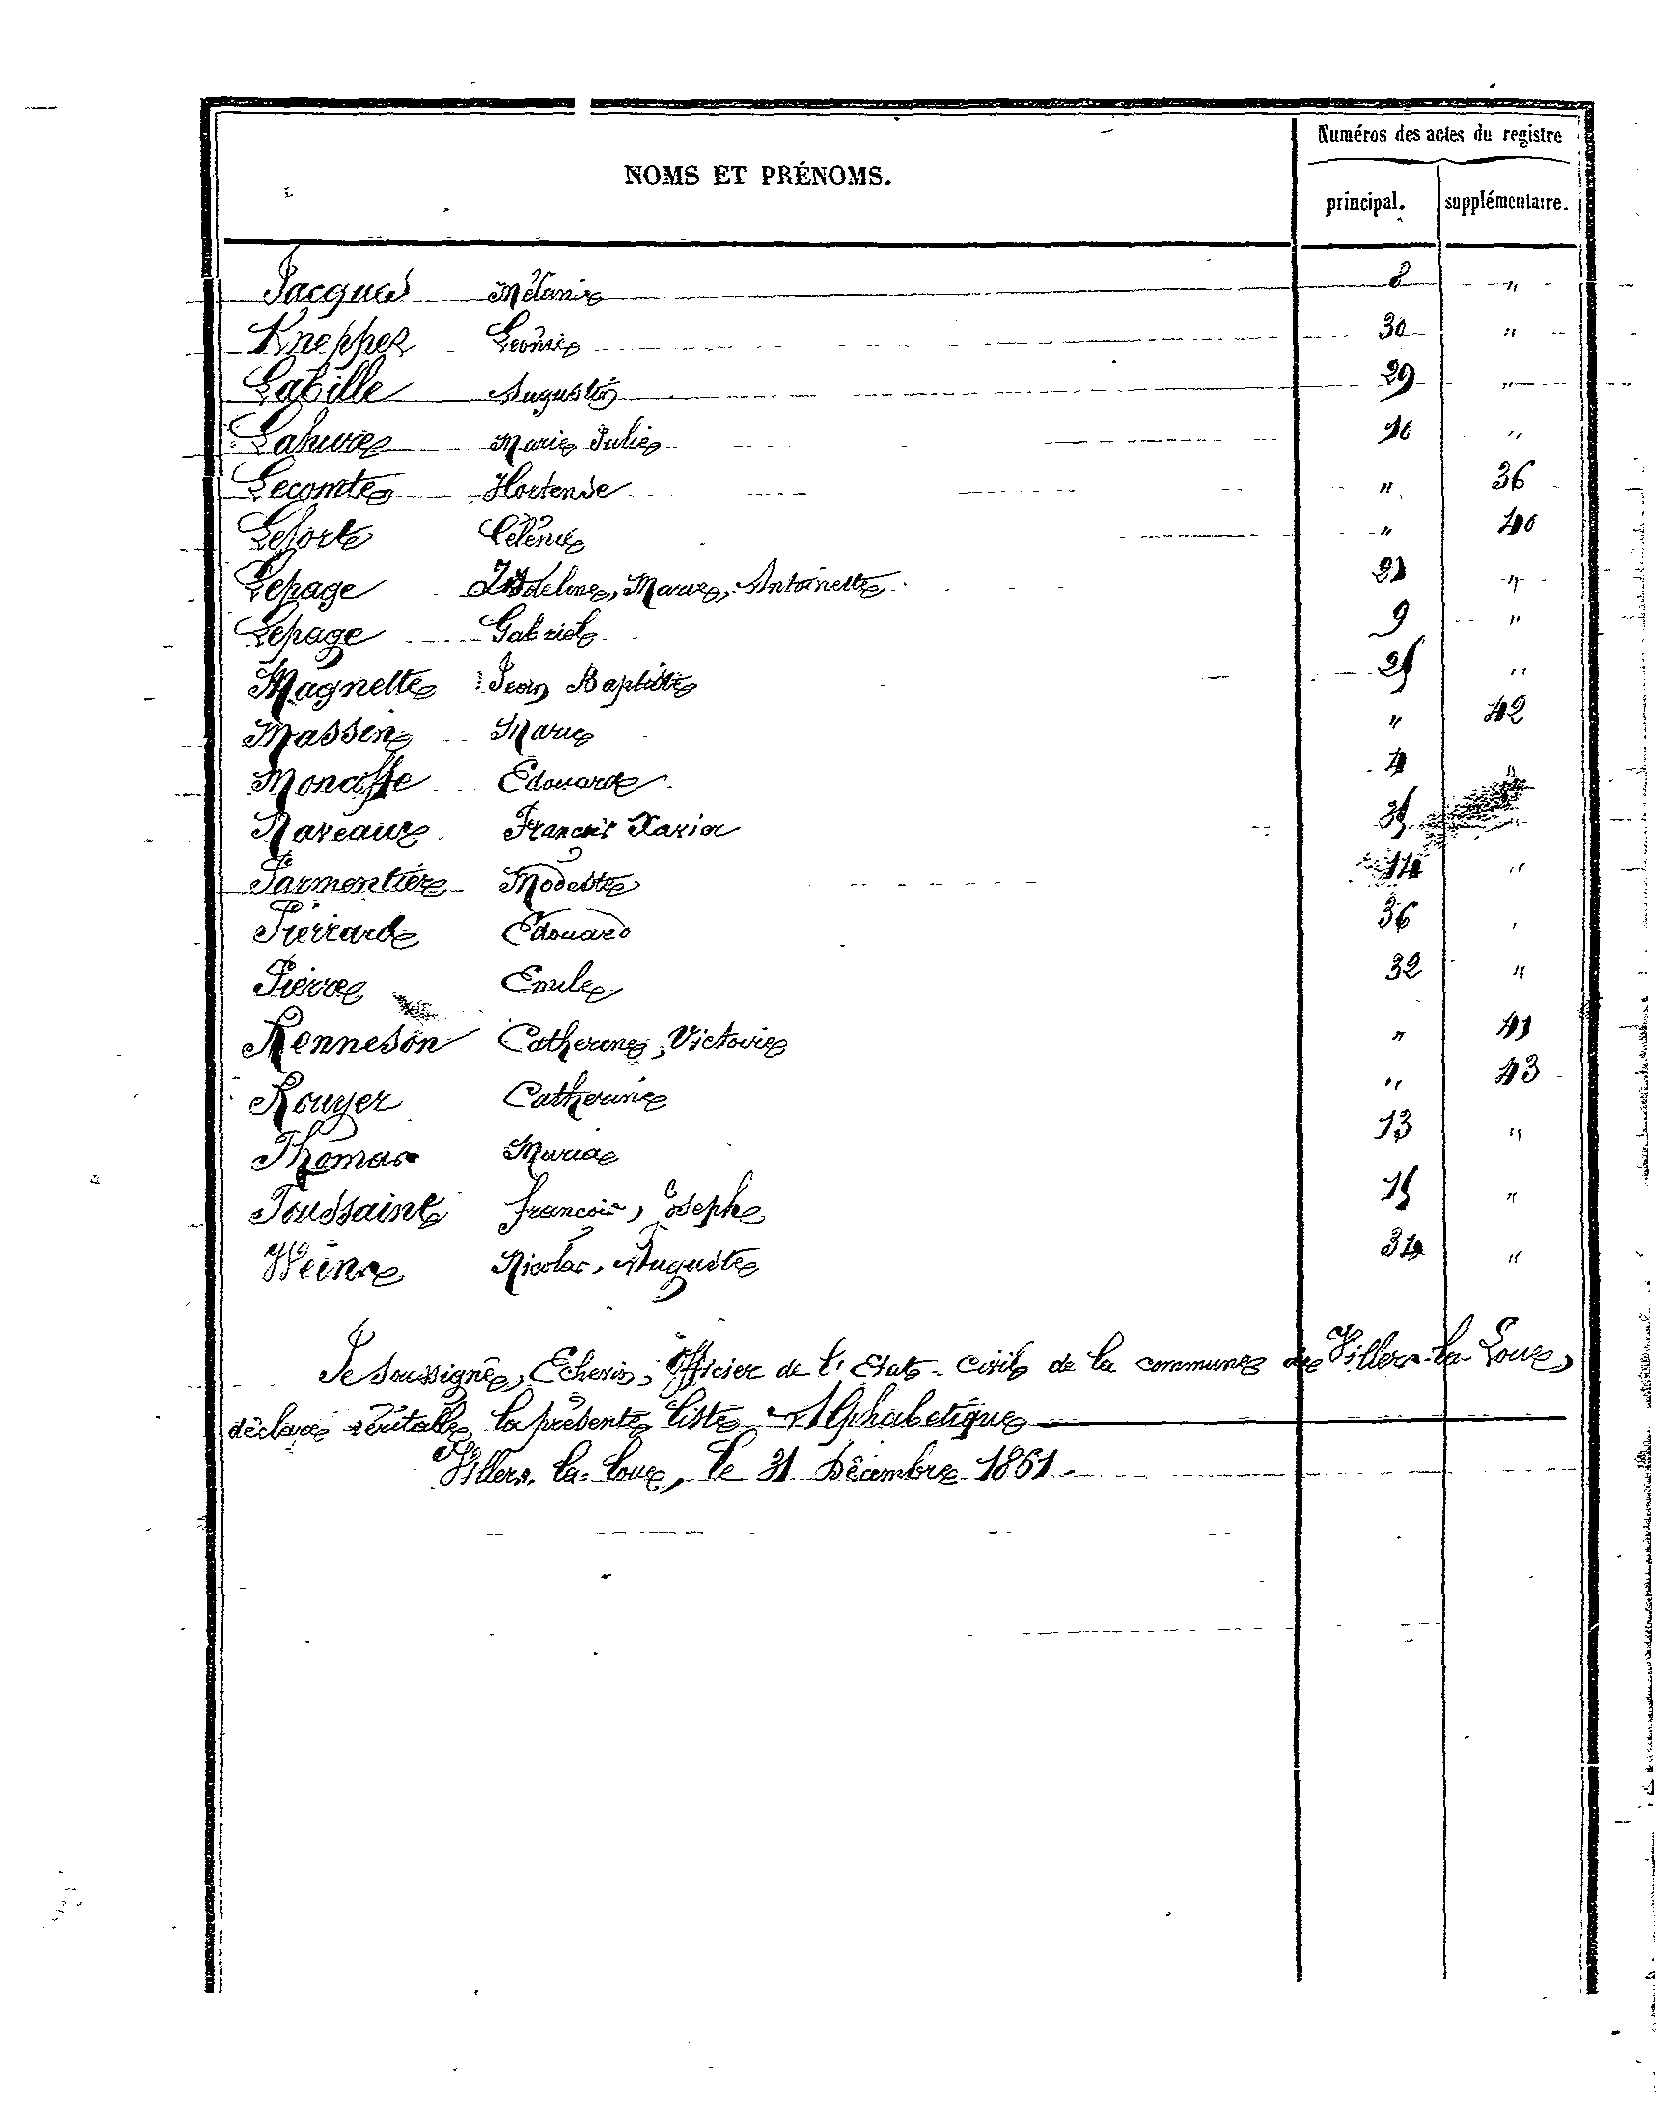 NOMS ET PRÉNOMS. Numéros des actes du registre
principal. supplémentaire.
Jacques Mélanie 8 "
Knepper Léonie 30 "
Labille Augustin 29 "
Lahure Marie Julie 10 "
Lecomte Hortense " 36
Lefort Célénie " 40
Lepage Adeline, Marie, Antoinette 21 "
Lepage Gabriel 9 "
Magnette Jean Baptiste 25 "
Massin Marie " 42
Moncoffe Edouard 4 "
Naveaux François Xavier 35 "
Parmentier Modeste 14 "
Pierrard Edouard 36 "
Pierre Emile 32 "
Renneson Catherine, Victoire " 41
Rouyer Catherine " 43
Thomas Maria 13 "
Toussaint François, Joseph 15 "
Weins Nicolas, Auguste 34 "
Je soussigné, Echevin, Officier de l'Etat-Civil de la commune de Villers-la-Loue,
déclare véritable la présente liste Alphabétique
Villers-la-Loue, le 31 Décembre 1861.